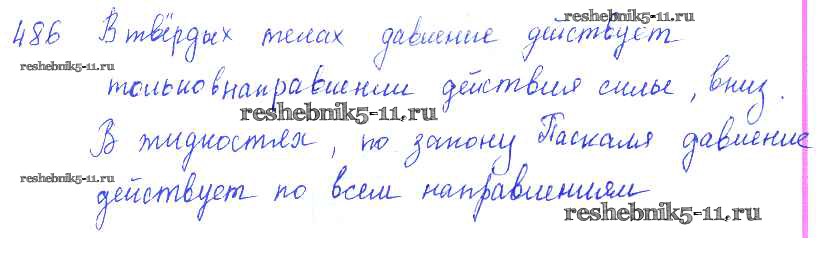 reshebnik5-11.ru
486 В твёрдых телах давление действует
reshebnik5-11.ru
только в направлении действия силы, вниз.
reshebnik5-11.ru
В жидкостях, по закону Паскаля давление
reshebnik5-11.ru
действует по всем направлениям
reshebnik5-11.ru